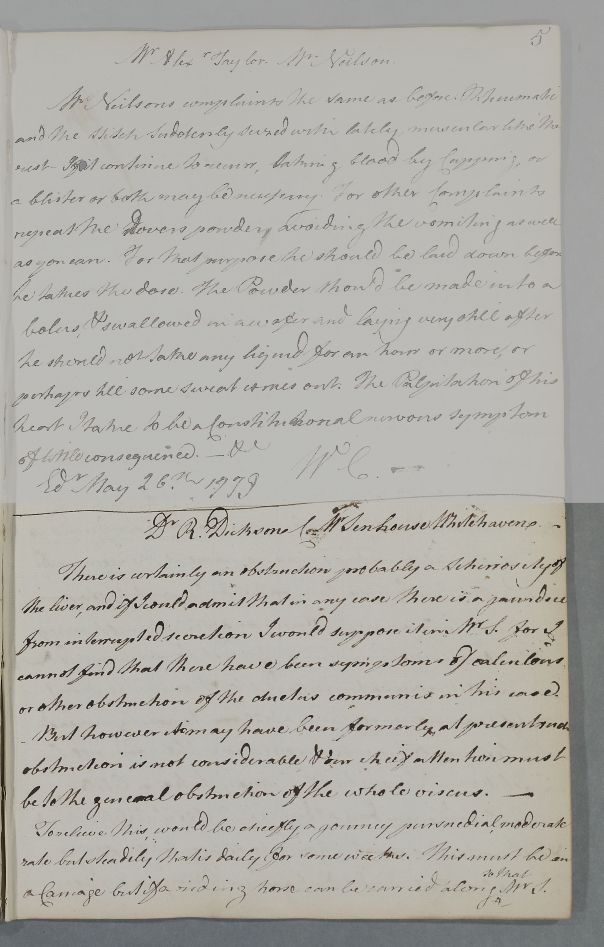 5
Mr Alexr Taylor. Mr Neilson.
Mr Neilsons complaints the same as before. Rheumatic
and the stitch Suddenly seized with lately muscular like the
rest - If it continue to recurr, taking blood by Cupping, or
a blister or both may be necessary. For other Complaints
repeat the Dovers powder, avoiding the vomiting as well
as you can. For that purpose he should be laid down before
he takes the dose. The Powder should be made into a
bolus, & swallowed in a wafer and laying very still after
he should not take any liquid for an hour or more, or
perhaps till some sweat comes out. The Palpitation of his
heart I take to be a Constitutional nervous symptom
of little consequence. — &c
Edr May 26th 1779 W. C.
Dr R. Dickson Con Mr Senhouse Whitehaven.
There is certainly an obstruction probably a Schirrosity of
the liver, and if I could admit that in any case there is a jaundice
from interrupted secretion I would suppose it in Mr S. for I
cannot find that there have been symptoms of calculous
or other obstruction of the ductus communis in his case.
- But however it may have been formerly, at present such
obstruction is not considerable & our chief attention must
be to the general obstruction of the whole viscus. —
To relieve this, would be chiefly a journey pursued at moderate
rate but steadily that is daily for some weeks. This must be in
a Carriage but if a riding horse can be carried along so that Mr S.